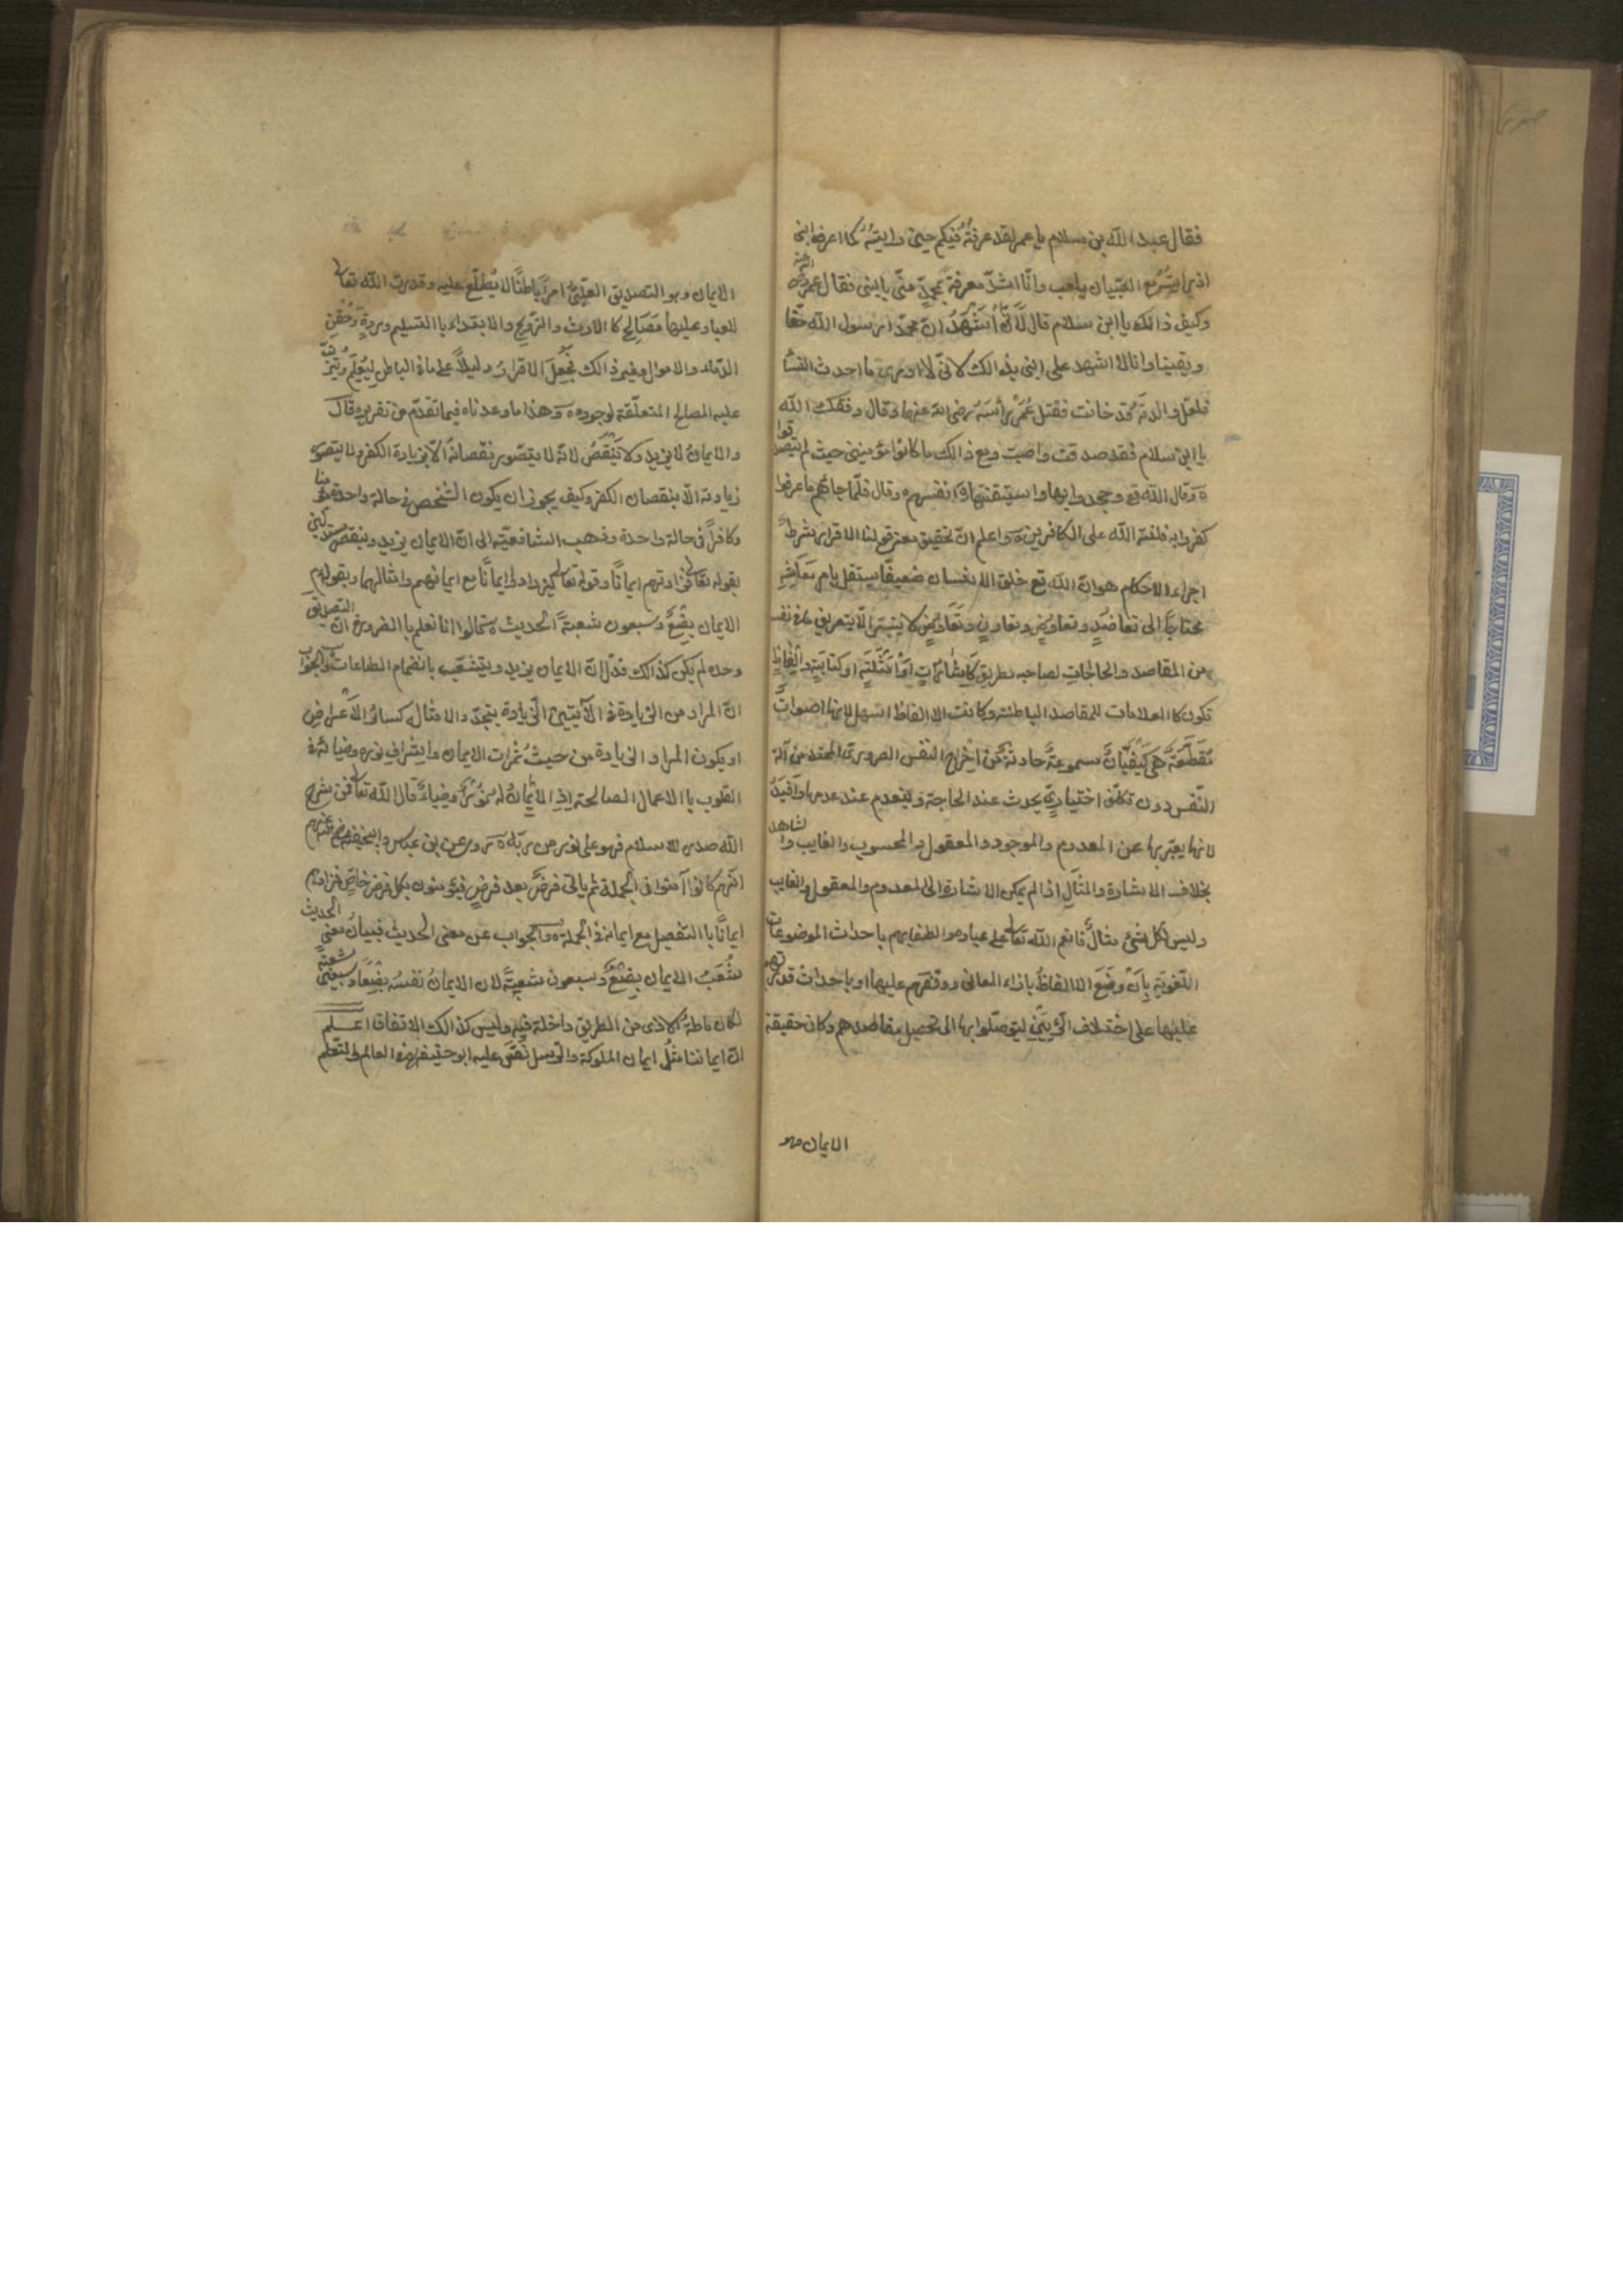 فقال عبد الله بن سلام يا عمر لقد عرفته فيكم حين رايته كما اعرف ابنى
اذ رايته مع الصبيان يلعب وانا اشد معرفة بمحمد منى بابنى فقال عمر رضى الله عنه
وكيف ذالك يا ابن سلام قال لانى أشهد ان محمدا رسول الله حقا
ويقينا وانا لا اشهد على ابنى بذالك لانى لا ادرى ما احدث النسا
فلعل والدته قد خانت فقبل عمر رأسه رضى الله عنهما وقال وفقك الله
يا ابن سلام فقد صدقت واصبت ومع ذالك ما كانوا مؤمنين حيث لم يتصدقوا
وقال الله تع وجحدوا بها واستيقنتها انفسهم وقال فلما جائهم ما عرفوا
كفروا به فلعنة الله على الكافرين واعلم ان تحقيق معنى قولنا الاقرار شرط
اجراء الاحكام هو ان الله تع خلق الانسان ضعيفا يستقل بامر معاشه
محتاجا الى تعاضد وتعاوض وتعاون وتعاوض لا يتيسر الا بتعريف ما فى نفسه
من المقاصد والحاجات لصاحبه بطريق كاشارات او امثلة او كتابة والفاظ
تكون كا العلامات للمقاصد الباطنة وكانت الالفاظ اسهل لانها اصوات
مقطعة هى كيفيات مسموعة حادثة من اخراج النفس الضرورى الممتد من آلة
النفس دون تكلف اختيارى يحدث عند الحاجة وينعدم عند عدمها وافيد
لانها يعبر بها عن المعدوم والموجود والمعقول والمحسوس والغايب والشاهد
بخلاف الاشارة والمثال اذ لم يمكن الاشارة الى المعدوم والمعقول والغايب
وليس لكل شئ مثال فانعم الله تعالى على عباده والطف بهم باحداث الموضوعات
اللغوية بأن وضع الالفاظ بازاء المعانى ووقفهم عليها او باحداث قدرتهم
عليها على اختلاف الرأيين ليتوصلوا بها الى تحصيل مقاصدهم وكان حقيقة
الايمان وهو
الايمان وهو التصديق القلبى امرا باطنا لا يطلع عليه وقد رتب الله تعالى
للعباد عليها مصالح كا الارث والتزويج والابتداء با التسليم ورده وحقن
الدماء والاموال وغير ذالك فجعل الاقرار دليلا على ما فى الباطن ليعلم ويترتب
عليه المصالح المتعلقة لوجوده وهذا ما وعدناه فيما تقدم من تقريره قال
والايمان لا يزيد ولا ينقص لانه لا يتصور نقصانه الا بزيادة الكفر ولا يتصور
زيادته الا بنقصان الكفر وكيف يجوز ان يكون الشخص فى حالة واحدة مؤمنا
وكافرا فى حالة واحدة وذهب الشافعية الى ان الايمان يزيد وينقص متمسكين
بقوله تعالى فزادتهم ايمانا وقوله تعالى ليزدادوا ايمانا مع ايمانهم وامثالهما وبقوله عم
الايمان بضع وسبعون شعبة الحديث قالوا انا نعلم با الضرورة ان التصديق
وحده لم يكن كذالك فدل ان الايمان يزيد ويتشعب بانضمام الطاعات والجواب
ان المراد من الزيادة فى الآيتين الزيادة بتجدد الامثال كسائر الاعراض
او يكون المراد الزيادة من حيث ثمرات الايمان واشراف نوره وضيائه فى
القلوب با الاعمال الصالحة اذ الايمان له نور وضياء قال الله تعالى فمن شرح
الله صدره للاسلام فهو على نور من ربه روى عن ابن عباس وابيحنيفة رضى عنهم
انهم كانوا آمنوا فى الجملة ثم يأتى فرض بعد فرض فيؤمنون بكل فرض خاص فزادهم
ايمانا با التفصيل مع ايمانه فى الجملة والجواب عن معنى الحديث فبيان معنى الحديث
شعب الايمان بضع وسبعون شعبة لان الايمان نفسه بضعا وسبعين شعبة
لكان اماطة الاذى من الطريق داخلة فيه وليس كذالك الاتفاقا اعلم
ان ايماننا مثل ايمان الملوكة والرسل نص عليه ابو حنيفة فى العالم والمتعلم